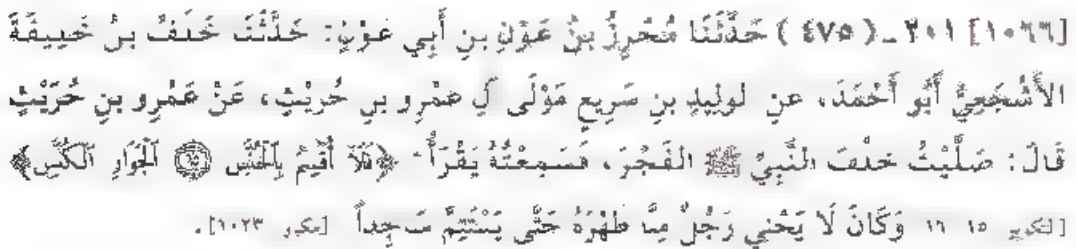 [١٠٦٦] ٢٠١ ـ ( ٤٧٥ ) حَدَّثَنَا مُحْرِزُ بْنُ عَوْنِ بنِ أَبِي عَوْنٍ: حَدَّثَنَا خَلَفُ بنُ خَلِيفَةَ
الأَشْجَعِيُّ أَبُو أَحْمَدَ، عنِ الوَلِيدِ بنِ سَرِيعٍ مَوْلَى آلِ عَمْرِو بنِ حُرَيْثٍ، عَنْ عَمْرِو بنِ حُرَيْثٍ
قَالَ: صَلَّيْتُ خَلْفَ النَّبِيِّ ﷺ الفَجْرَ، فَسَمِعْتُهُ يَقْرَأُ: ﴿فَلَا أُقْسِمُ بِالْخُنَّسِ ۝ الْجَوَارِ الْكُنَّسِ﴾
[التكوير ١٥ ١٦ وَكَانَ لَا يَحْنِي رَجُلٌ مِنَّا ظَهْرَهُ حَتَّى يَسْتَتِمَّ سَاجِداً [مكرر ١٠٢٣].